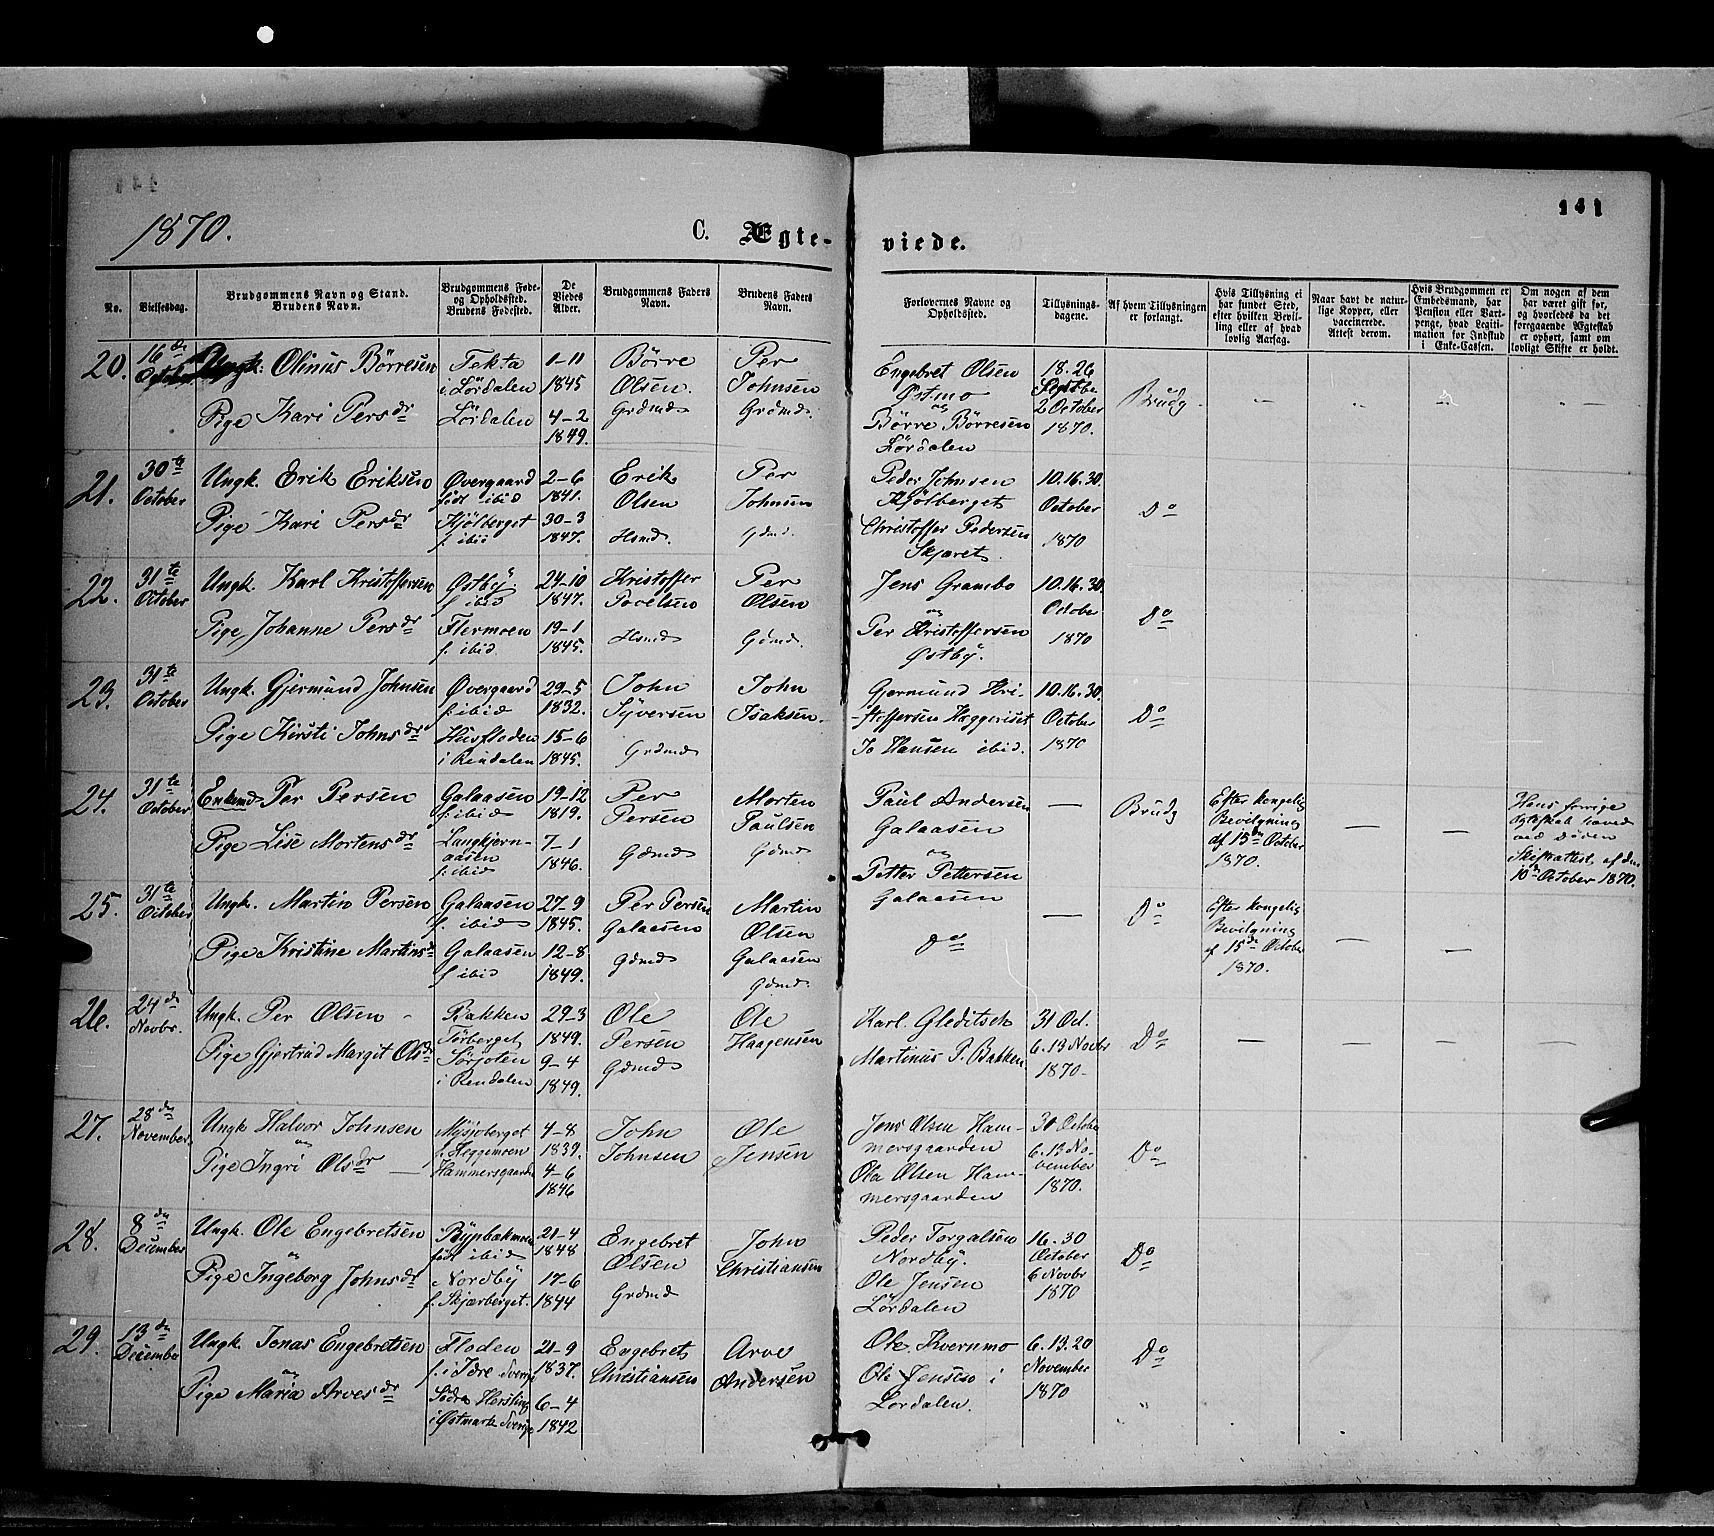 141
1870.
C. Ægte-
viede.
No.
Vielsesdag.
Brudgommens Navn og Stand.
Brudens Navn.
Brudgommens Føde-
og Opholdssted.
Brudens Fødested.
De
Viedes
Alder.
Brudgommens Faders
Navn.
Brudens Faders
Navn.
Forlovernes Navne og
Opholdssted.
Tillysnings-
dagene.
Af hvem Tillysningen
er forlangt.
Hvis Tillysning ei
har fundet Sted,
efter hvilken Bevil-
ling eller af hvad
lovlig Aarsag.
Naar havt de natur-
lige Kopper, eller
vaccinerede.
Attest derom.
Hvis Brudgommen er
Embedsmand, har
Pension eller Vart-
penge, hvad Legiti-
mation for Indskud
i Enke-Cassen.
Om nogen af dem
har været gift før,
og hvorledes da det
foregaaende Ægteskab
er ophørt, samt om
lovligt Skifte er holdt.
20.
16de
October
Ungk. Olinus Börresen
Pige Kari Persdr
Tekta
i Lördalen
Lördalen
1-11
1845
4-2
1849.
Börre
Olsen.
Grdmd
Per
Johnsen
Grdmd.
Engebret Olsen
Östmo
og
Börre Börresen
Lördalen
18. 26
Septbe
2 October
1870.
Brudg
21.
30te
October
Ungk. Erik Eriksen
Pige Kari Persdr
Övergaard
föd ibid
Kjölberget
f. ibid
2-6
1841.
30-3
1847.
Erik
Olsen
Hsmd.
Per
Johnsen
Gdmd.
Peder Johnsen
Kjölberget
Christoffer Pedersen
Skjæret
10. 16. 30.
October
1870
Do
22.
31te
October
Ungk. Karl Kristoffersen
Pige Johanne Persdr
Östby
f. ibid
Flermoen
f. ibid
24-10
1847.
19-1
1845.
Kristoffer
Povelsen
Hsmd
Per
Olsen
Gdmd.
Jens Grambo
og
Per Kristoffersen
Östby.
10. 16. 30.
Octobe
1870
Do
23.
31te
October
Ungk. Gjermund Johnsen
Pige Kirsti Johnsdr
Övergaard
f. ibid
Husfloden
i Rendalen
29-5
1832.
15-6
1845.
John
Syversen
Grdmd
John
Isaksen
Gjermund Kri-
-stoffersen Haggeriset
Jo Hansen ibid.
10. 16. 30.
October
1870
Do
24.
31te
October
Enkmd Per Persen
Pige Lise Mortensdr
Galaasen
f. ibid
Langkjern-
aasen
f. ibid
19-12
1819.
7-1
1846.
Per
Persen
Gdmd
Morten
Paulsen
Gdmd
Paul Andersen
Galaasen
og
Petter Pettersen
Galaasen
—
Brudg
Efter kongelig
Bevilgning
af 15de October
1870.
—
—
Hans forrige
Egteskab hæved
ved Döden
Skifteattest. af den
10de October 1870.
25.
31te
October
Ungk. Martin Persen
Pige Kristine Martinsdr
Galaasen
f. ibid
Galaasen
f. ibid
27-9
1845.
12-8
1849.
Per Persen
Galaasen
Gdmd
Martin
Olsen
Galaasen
Gdmd.
Do
—
Do
Efter kongelig
Bevilgning
af 15de October
1870.
—
—
26.
24de
Novbr.
Ungk. Per Olsen -
Pige Gjertrud Margit Olsdr
Bakken
Törberget
Sörjoten
i Rendalen
29-3
1849.
9-4
1849.
Ole
Persen
Gdmd
Ole
Haagensen
Karl. Gleditsch
Martinus P. Bakken
31 Oct.
6. 13 Novbr
1870-
Do
—
—
—
—
27.
28de
November
Ungk Halvor Johnsen
og
Pige Ingri Olsdr —
Mysjoberget
f. Heggemoen
Hammersgaarden
4-8
1839.
4-6
1846
John
Johnsen
Ole
Jensen
Jens Olsen Ham-
mersgaarden
Ola Olsen Ham-
mersgaarden
30 October
6. 13 No-
vember
1870.
Do
28.
8de
December
Ungk. Ole Engebretsen
og
Pige Ingeborg Johnsdr
föd ibid
Nordby
f. Skjærberget.
21-4
1848
17-6
1844
Engebret
Olsen
Grdmd
John
Christiansen
Peder Torgalsen
Nordby.
Ole Jensen
Lördalen
16. 30
October
6 Novbr
1870
Do
29.
13de
December
Ungk. Jonas Engebretsen
og
Pige Maria Arvesdr
Floden
f. i Idre Sverig
i Östmark Sverige
21-9
1837.
6-4
1842
Engebret
Christiansen
Arve
Andersen
Ole Kvernmo
Ole Jensen i
Lördalen.
6. 13. 20
November
1870
Do